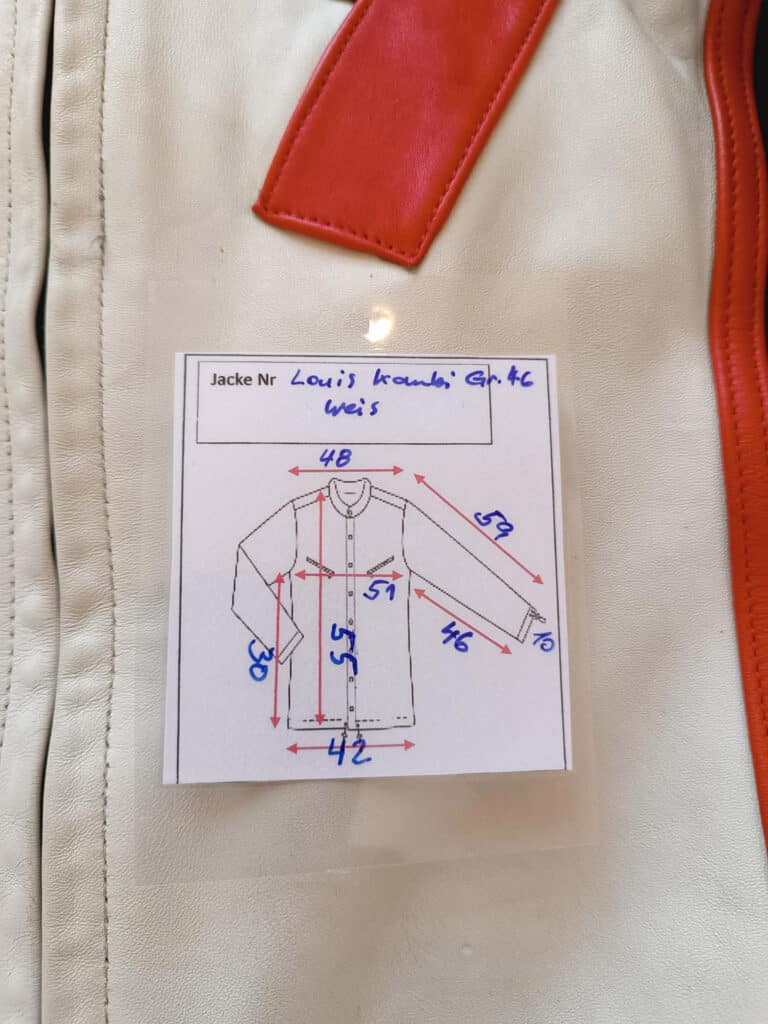 Jacke Nr Louis Kombi Gr. 46
Weis
48
59
51
46
10
30
55
42